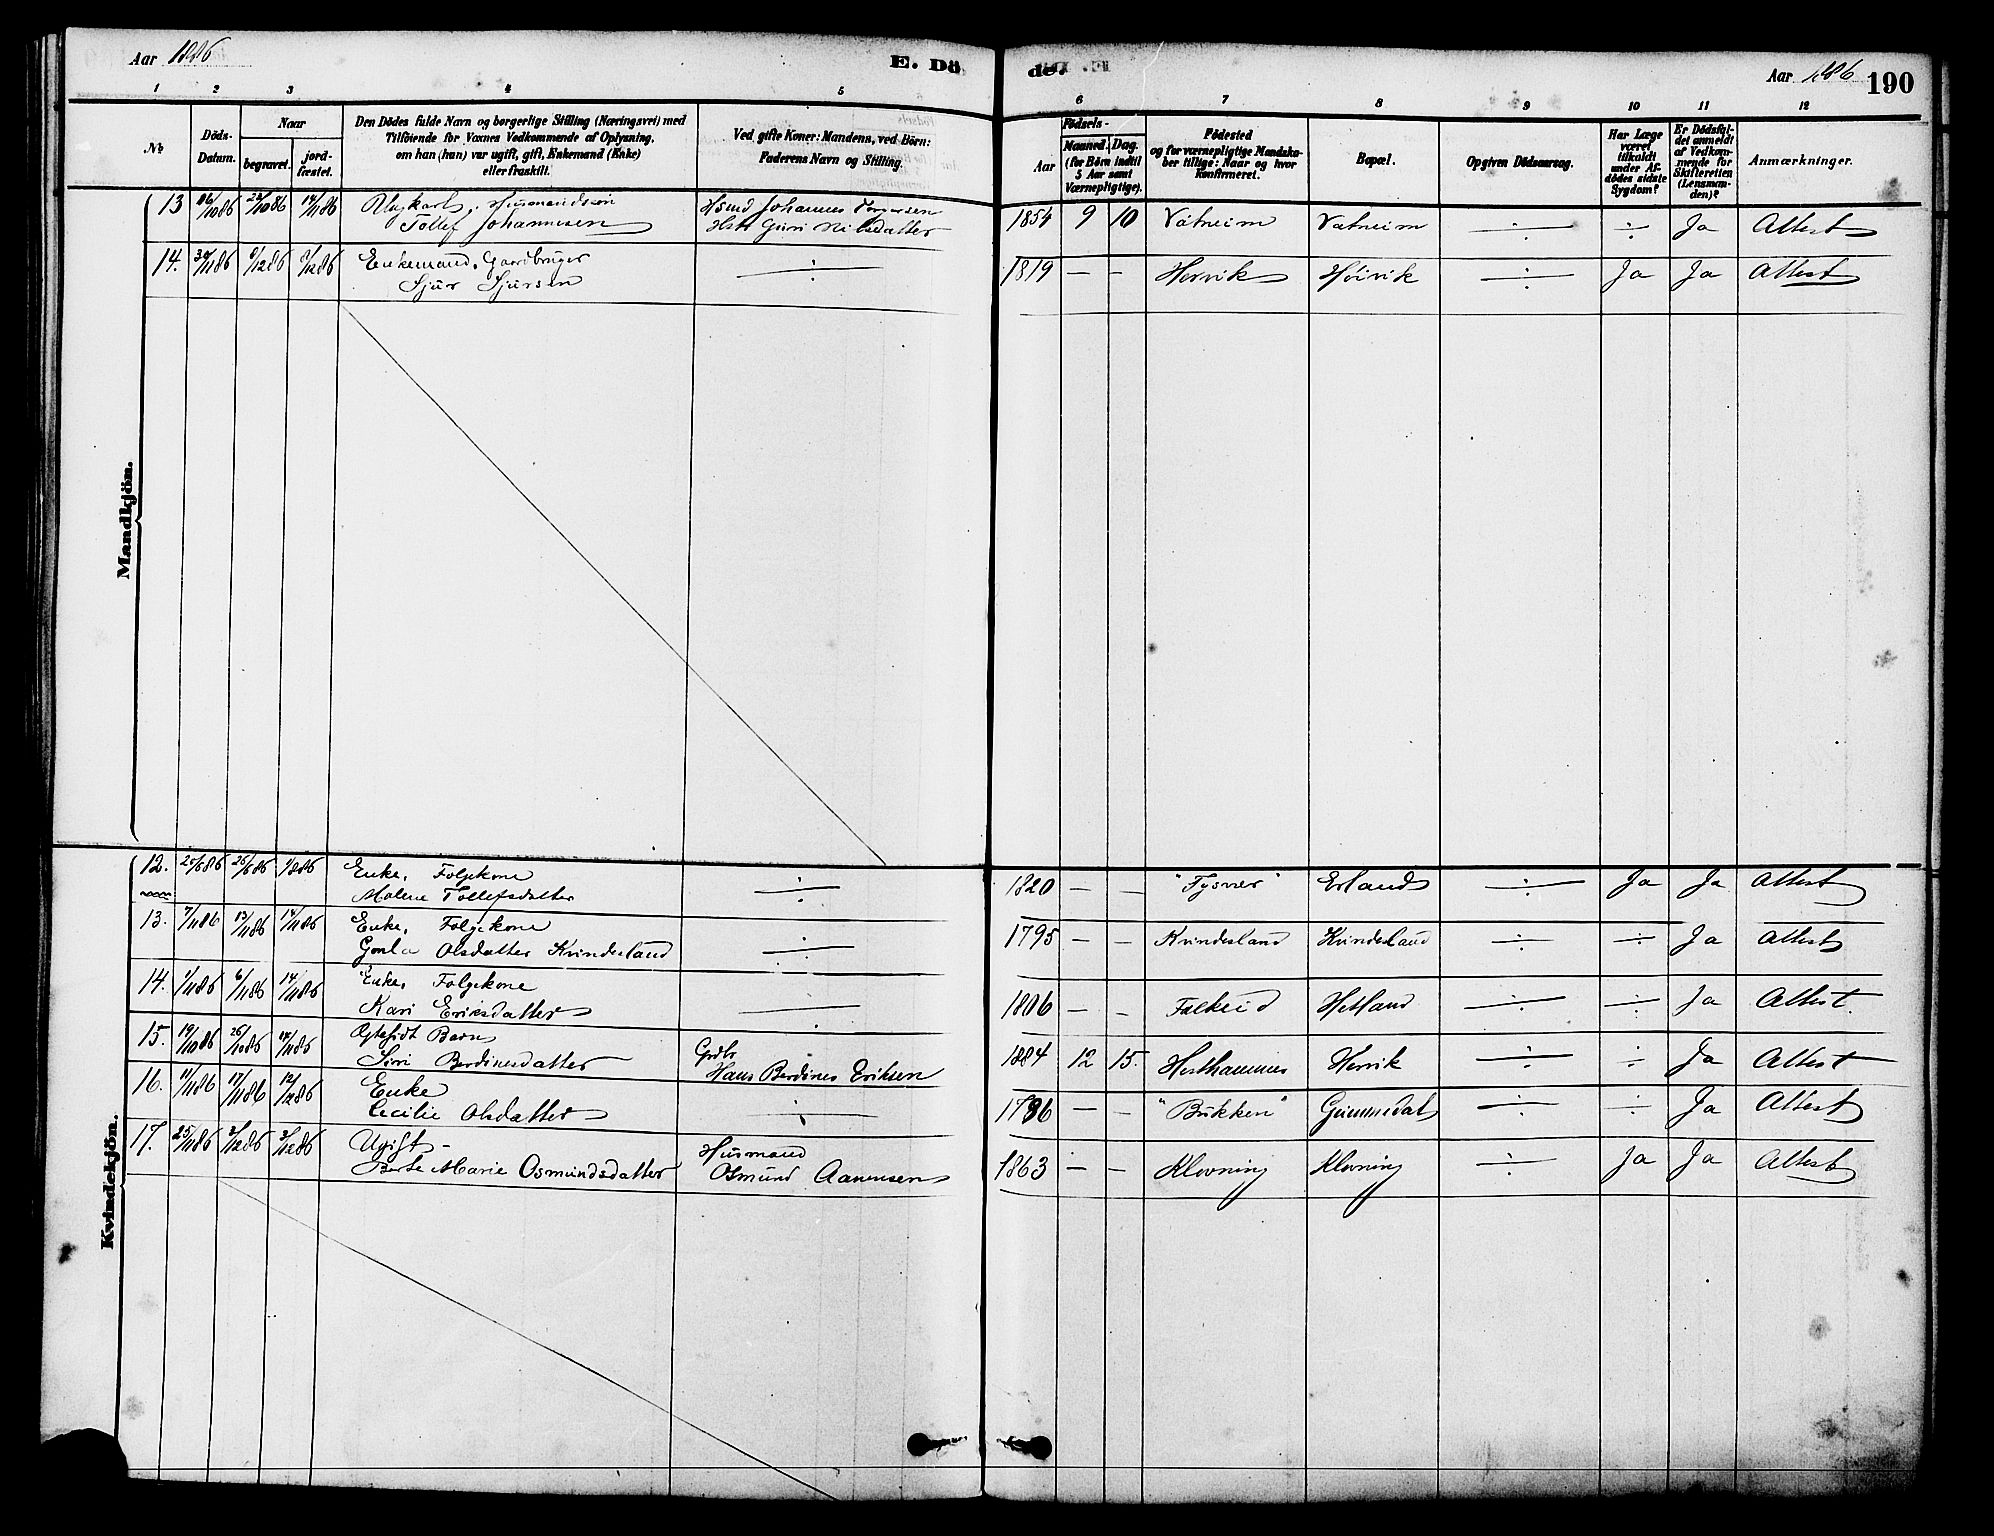 Aar 1886 E. Dö
1 2 3 4 5
№ Döds-Datum. Naar begravet. jordfæstet. Den Dödes fulde Navn og borgerlige Stilling (Næringsvei) med Tilföiende for Voxnes Vedkommende af Oplysning, om han (hun) var ugift, gift, Enkemand (Enke) eller fraskilt. Ved gifte Koner: Mandens, ved Börn: Faderens Navn og Stilling.
Mandkjön.
13 16/10 86 23/10 86 14/11 86 Ungkarl, Husmandssön
Tollef Johannesen
Hsmd Johannes
Hstr Guri Nilsdatter
14. 30/11 86 6/12 86 9/12 86 Enkemand, Gaardbruger
Sjur Sjursen ÷
Kvindekjön.
12. 20/6 86 26/6 86 1/8 86 Enke, Folgekone
Malene Tollefsdatter ÷
13. 7/11 86 13/11 86 14/11 86 Enke, Folgekone
Olsdatter Kvindesland ÷
14. 1/11 86 6/11 86 14/11 86 Enke, Folgekone
Kari Eriksdatter ÷
15. 19/10 86 26/10 86 14/11 86 Ægtefødt Barn
Siri Berdinesdatter
Grdbr
Hans Berdines Eriksen
16. 11/11 86 17/11 86 12/12 86 Enke
Cecilie Olsdatter ÷
17. 25/11 86 3/12 86 3/12 86 Ugift -
Berte Marie Osmundsdatter
Husmand
Osmund Aanensen
de. Aar 1886 190
6 7 8 9 10 11 12
Födsels-
Aar Maaned. Dag. (for Börn indtil 5 Aar samt Værnepligtige). Födested og for værnepligtige Mandskaber tillige: Naar og hvor Konfirmeret. Bopæl. Opgiven Dödsaarsag. Har Læge været tilkaldt under Afdödes sidste Sygdom? Er Dödsfaldet anmeldt af Vedkommende for Skifteretten (Lensmanden)? Anmærkninger.
1854 9 10 Vatneim Vatneim ÷ ÷ Ja Attest
1819 — — Hervik Höivik ÷ Ja Ja Attest
1820 — — "Tysvær" Erland ÷ Ja Ja Attest
1795 — — Kvindesland Kvindesland ÷ ÷ Ja Attest
1806 — — Falkeid Hetland ÷ ÷ Ja Attest.
1884 12 15. Hesthammer Hervik ÷ ÷ Ja Attest
1796 — — "Bukken" Grinnedal ÷ ÷ Ja Attest
1863 — — Klovning Klovning ÷ Ja Ja Attest